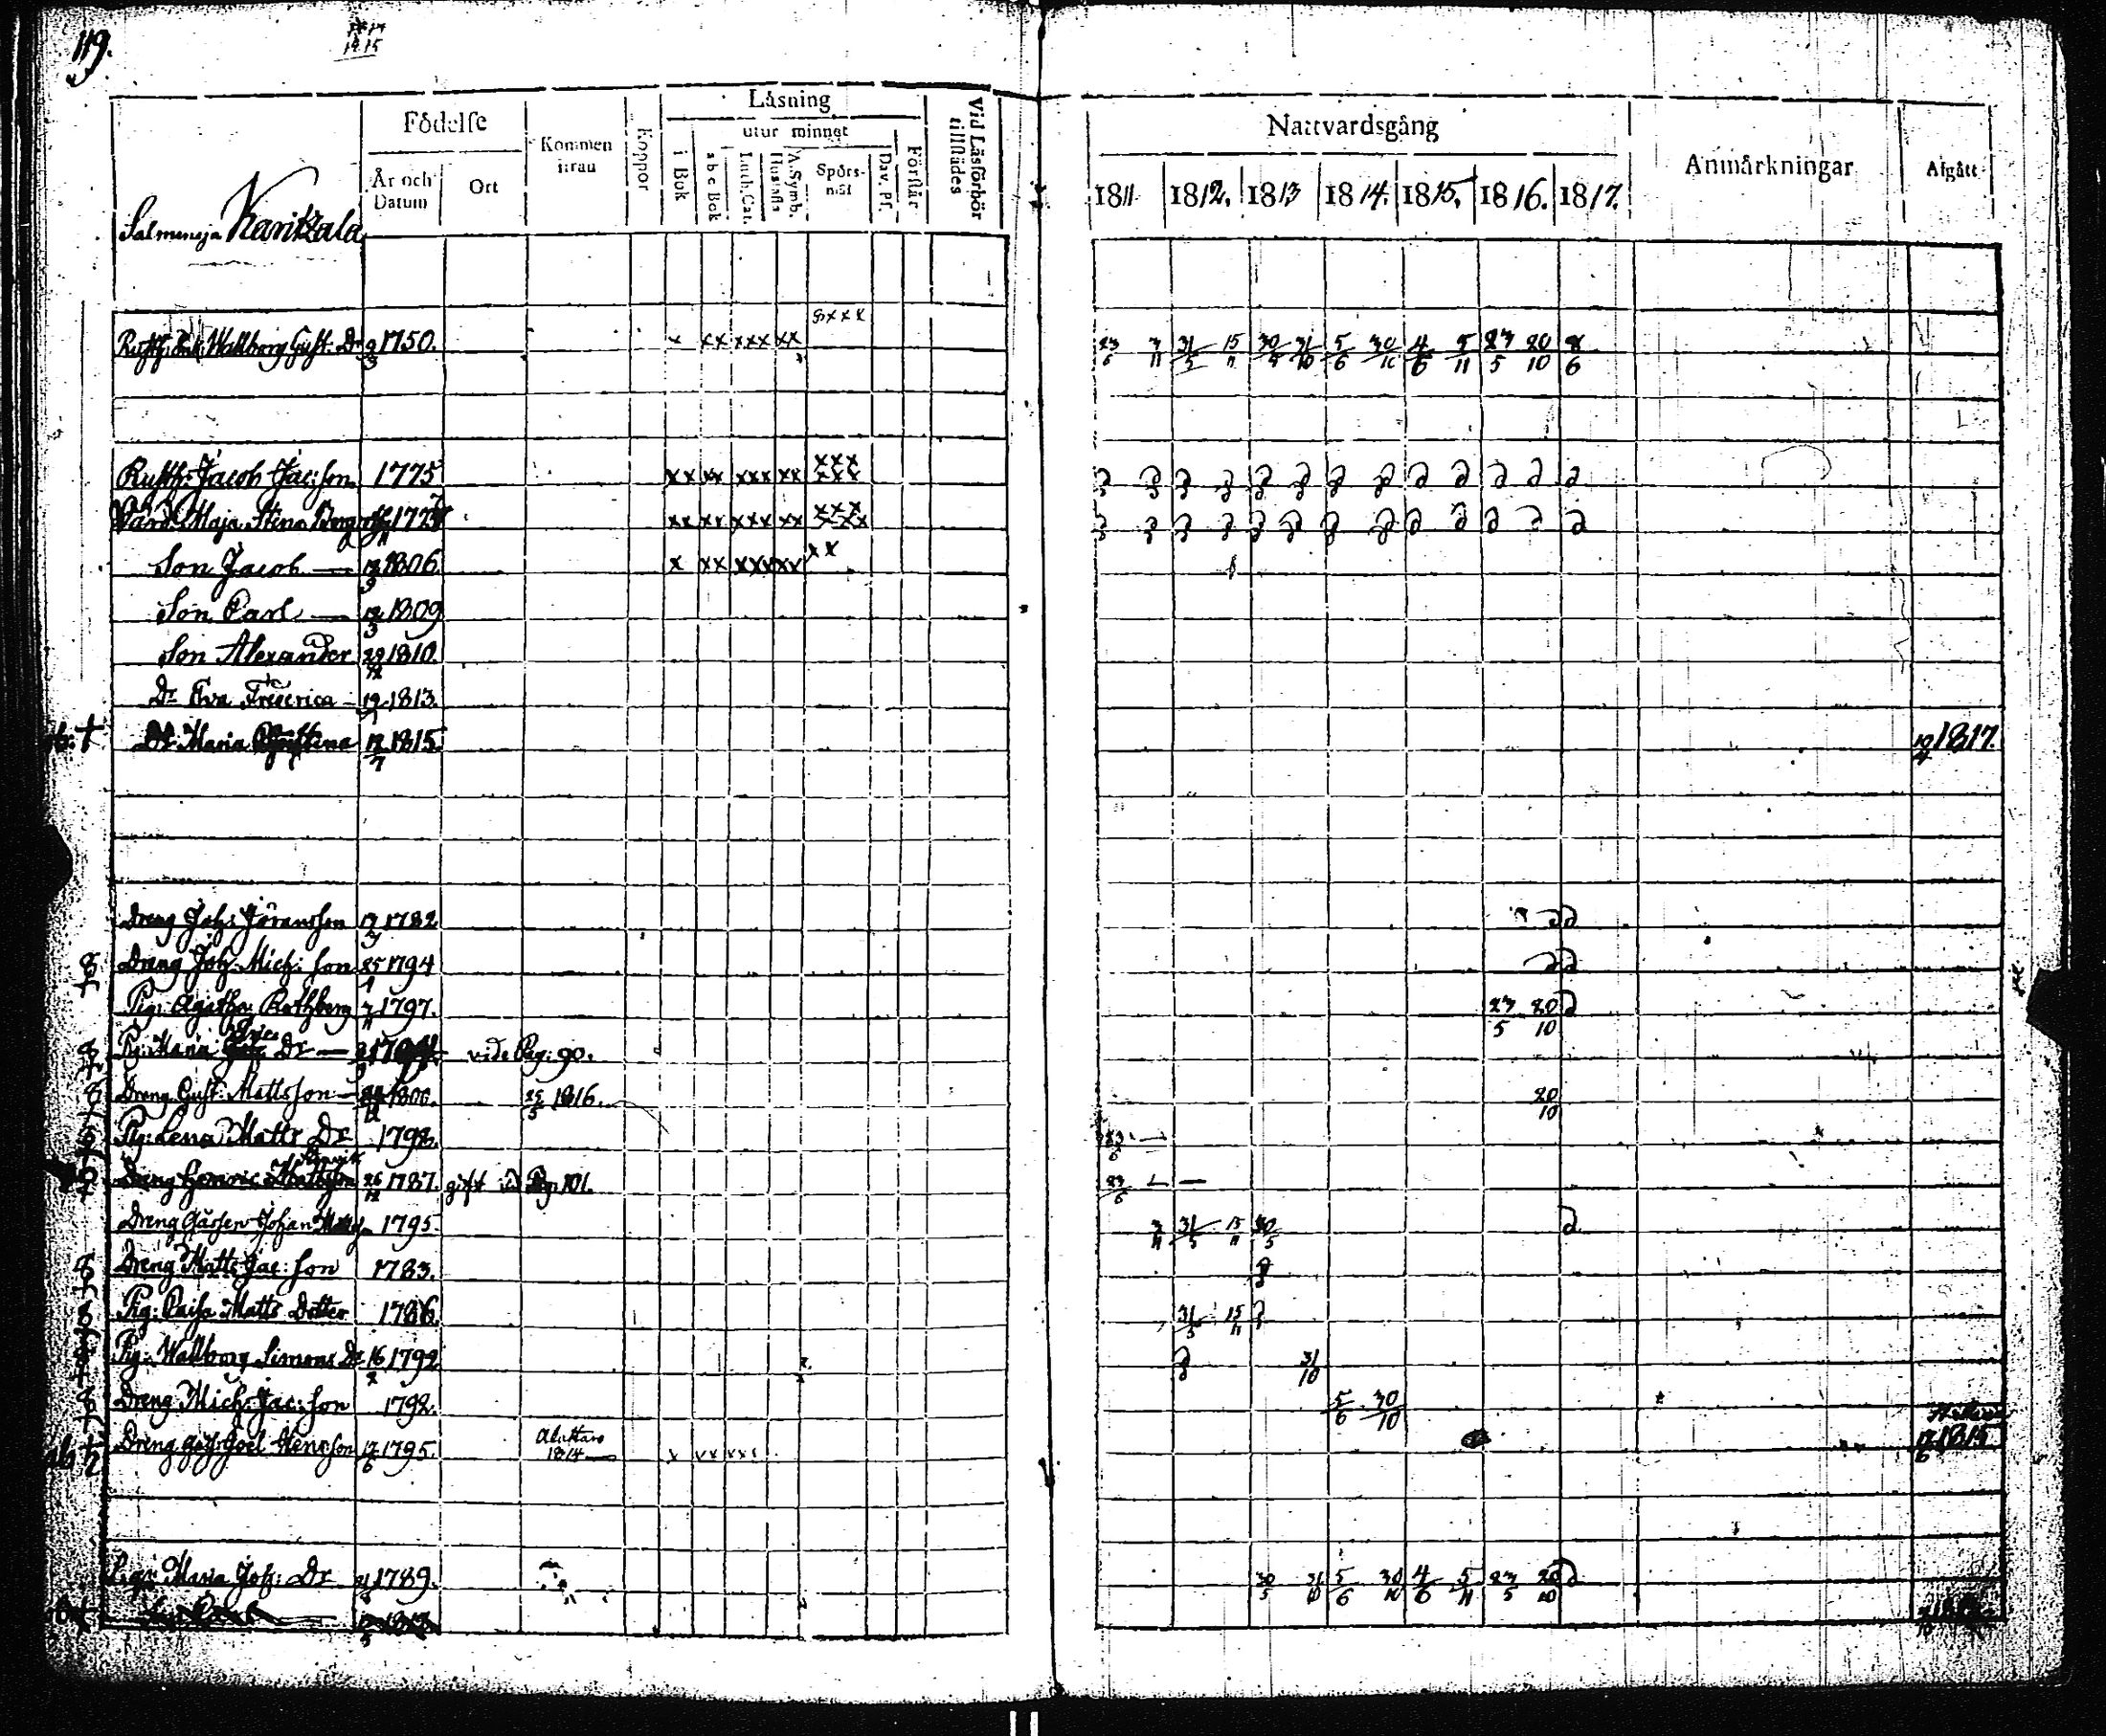 119.
Födelse
Kommen ifrån
Koppor
Läsning
utur minnet
Vid Läsförhör tillstädes
År och Datum
Ort
i Bok
a b c Bok
Luth. Cat.
Hustafla
A. Symb.
Spörs-mål
Dav. Ps.
Förstår
Nattvardsgång
Anmärkningar
Afgått
1811 1812. 1813 1814. 1815. 1816. 1817.
Salmenoja Karikkala
Wallborg Gust. Dr 1750. x xx xxx xx 23/6 3/11 31/5 15/11 30/5 31/10 5/6 30/10 4/6 5/11 23/5 20/10 8/6
Rusth: Jacob Jac:son 1775 xx xx xxx xx xxx xxx
Maja Stina xx xx xxx xx xxx
Son Jacob — 1806 x xx xxx xx xx
Son Carl — 12/3 1809
Son Alexander 29/12 1810.
Dr Eva Frederica — 19/1 1813.
Dr Maria 12/7 1815. 10/4 1817.
Dreng Joh: Jöransson 1782
Dreng Joh: Mich: son 25/1 1794
Pig: Agatha Rothberg 7/11 1797. 23/5 20/10
Pig: Maria Dr — vide Pag: 90.
Dreng Gust: Mattsson — 1800. 25/5 1816. 20/10
Pig: Lena Matts Dr 1798. 23/6 —
Dreng Henric Mattsson 26/12 1787. gift vid Pag. 101. 23/6 —
Dreng Johan 1795 3/11 31/5 15/11 30/5
Dreng Matts Jac: son 1783.
Pig: Caisa Matts Dotter 1786. 31/5 15/11
Pig: Wallborg Simons Dr 16/2 1792 31/10
Dreng Mich: Jac: son 1792. 5/6 30/10
Dreng Joel Hencson 17/6 1795. 1814 x xx xxx 1815
Pig: Maria Joh: Dr 1789. 30/5 31/10 5/6 30/10 4/6 5/11 23/5 20/10